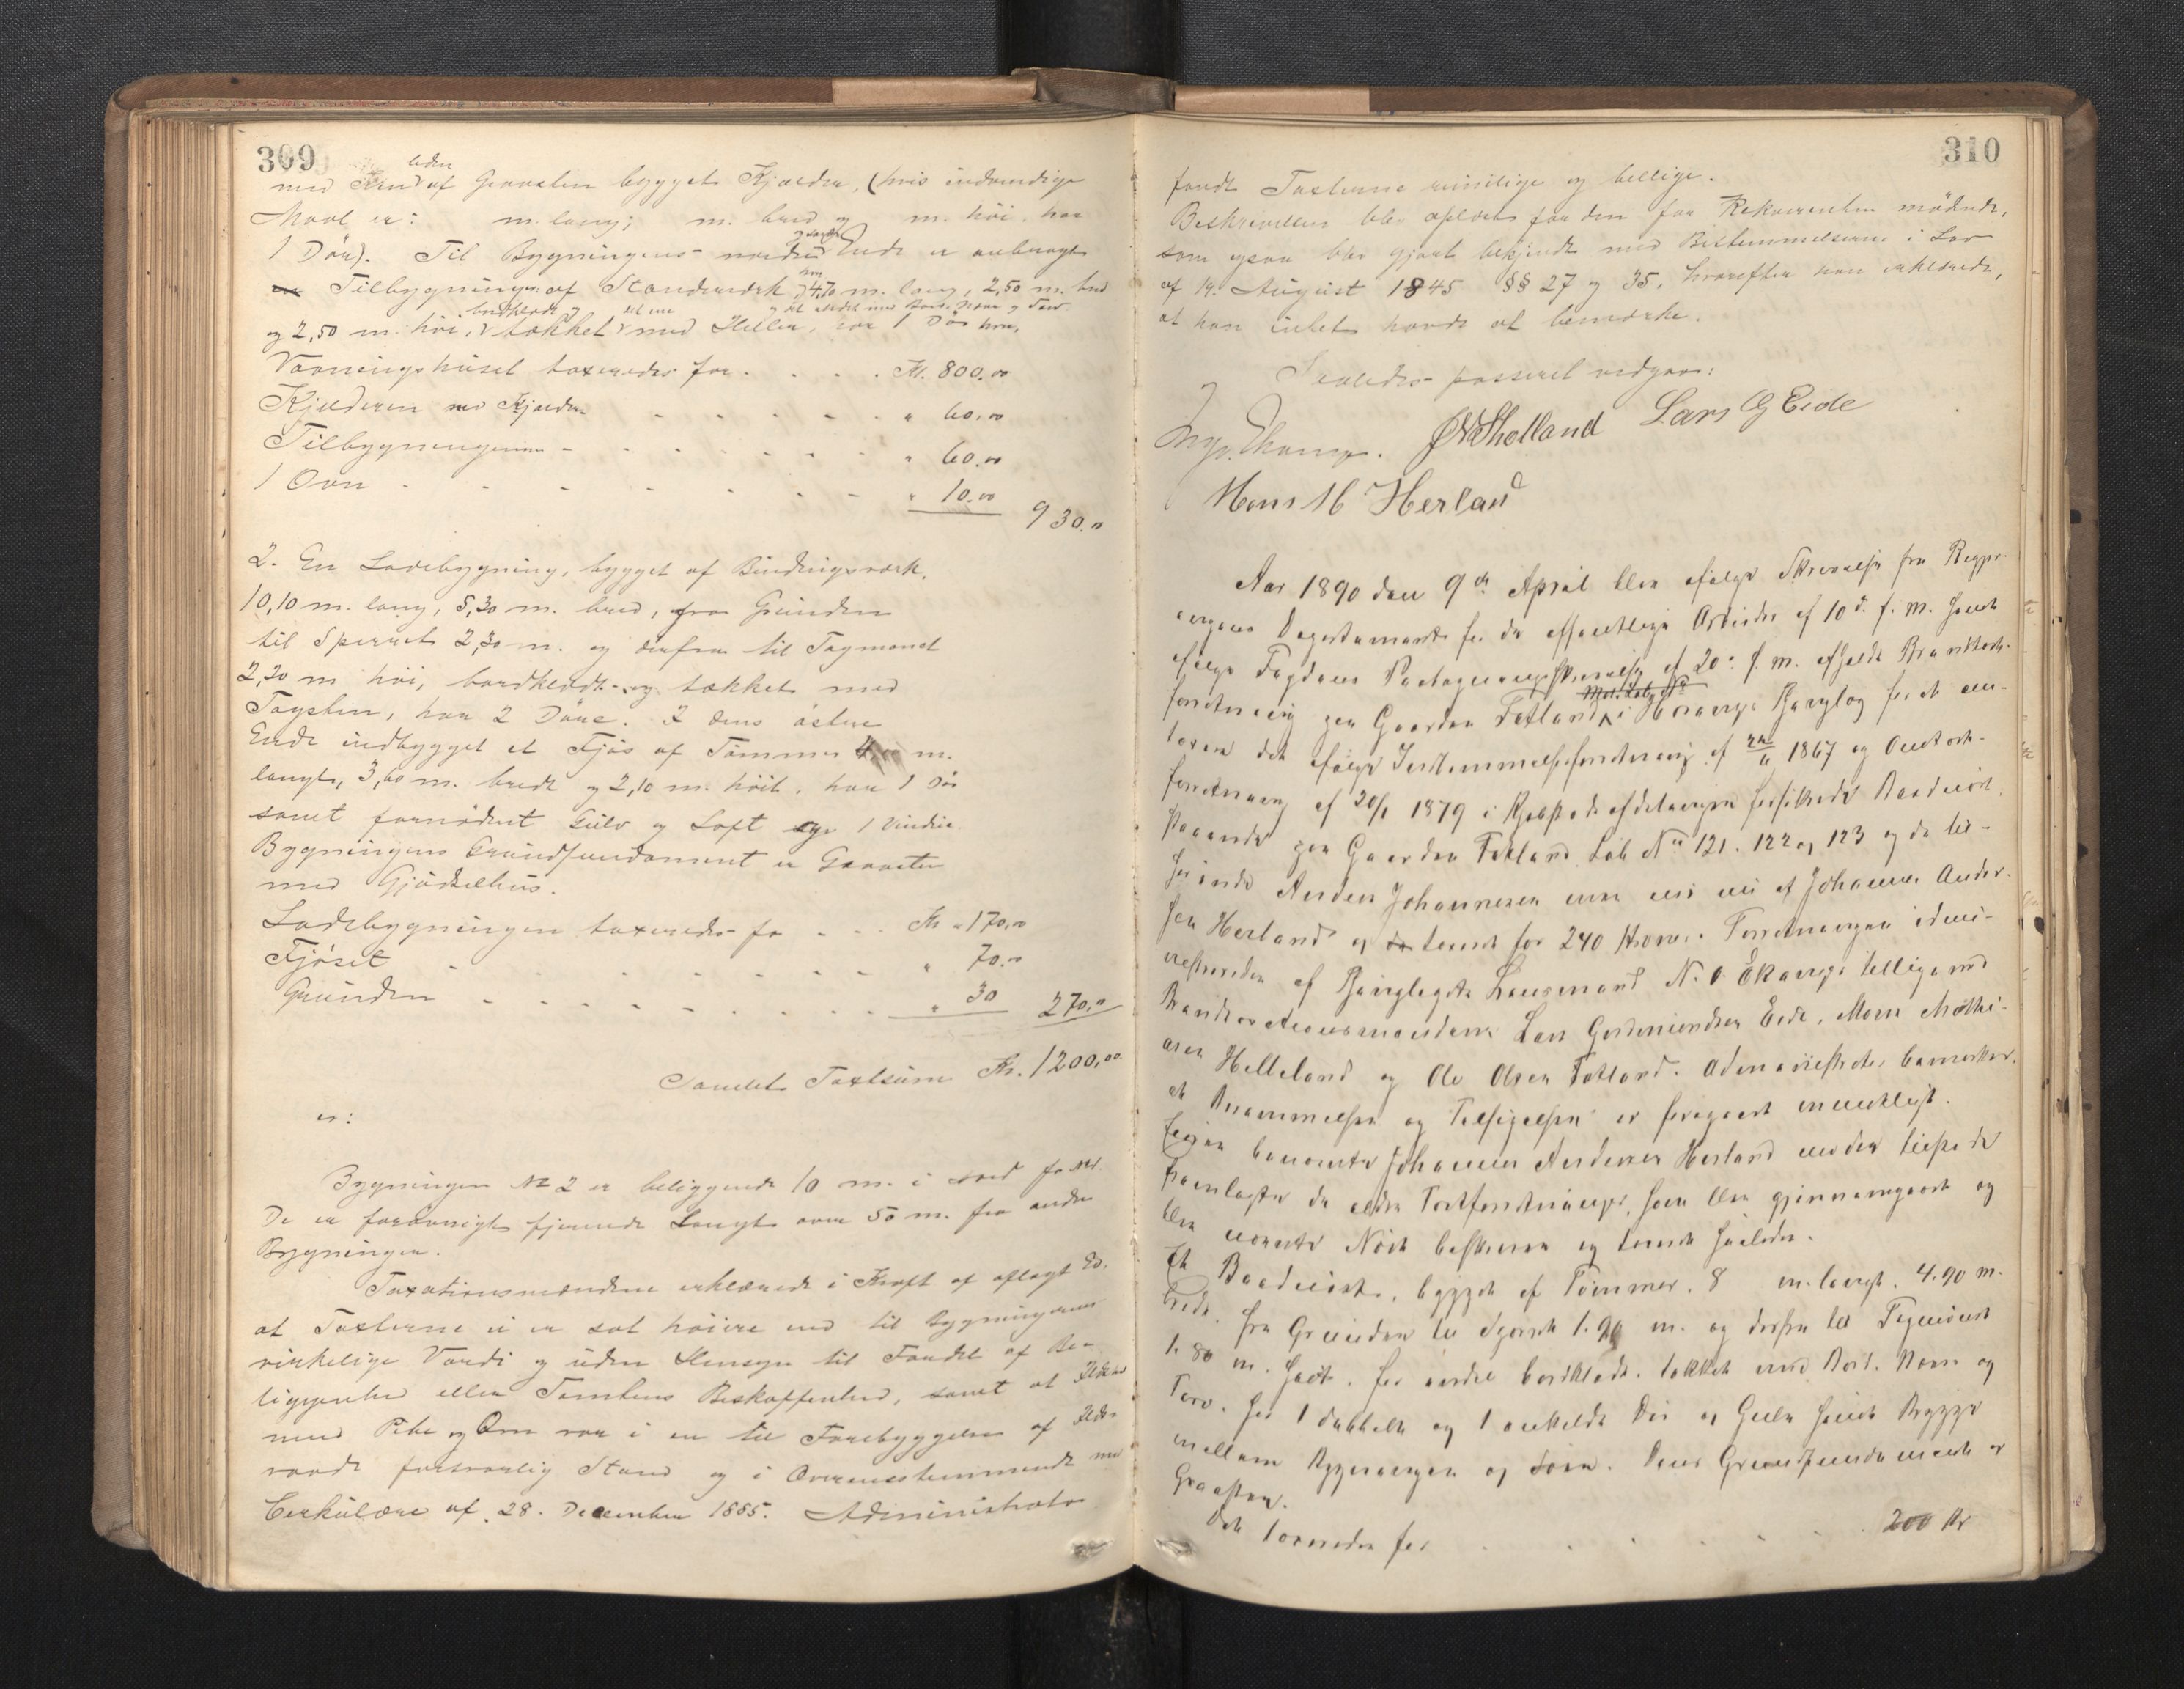 309
uden
med Grund af Graasten bygget Kjælder, (hvis indvendige
Maal er: m. lang; m. bred og m. høi. har
1 Dør). Til Bygningens nordre og søndre Ende er anbragt
Tilbygninger af Stenderværk, hver 4,70 m. lang, 2,50 m. bred
og 2,50 m. høi, bordklædt og tækket det ene med Heller, og det andet med Bord, Næver og Torv har 1 Dør hver.
Vaaningshuset taxeredes for . . . . Kr. 800,00
Kjælderen . . . . . . " 60,00
Tilbygningerne - . . . . . . " 60,00
1 Ovn . . . . . . . " 10,00
930,"
2. En Ladebygning, bygget af Bindingsværk,
10,10 m. lang, 5,30 m. bred, fra Grunden
til Sperret 2,30 m. og derfra til Tagmønet
2,20 m høi, bordklædt og tækket med
Tagsten, har 2 Døre. I dens østre
Ende indbygget et Fjøs af Tømmer m.
langt, 3,60 m. bredt og 2,10 m. høit, har 1 Dør
samt fornødent Gulv og Loft og 1 Vindue.
Bygningens Grundfundament er Graasten
med Gjødselhus.
Ladebygningen taxeredes for - . . Kr " 170,00
Fjøset . . . . . . . " 70.00
Grunden . . . . . . . " 30
270,"
Samlet Taxtsum Kr. 1200,00
er:
Bygningen № 2 er beliggende 10 m. i ord fra № 1.
De er forøvrigt fjernede langt over 50 m. fra andre
Bygninger.
Taxationsmændene erklærede i Kraft af aflagt Ed,
at Taxterne ei er sat høiere end til Bygningernes
virkelige Værdi og uden Hensyn til Fordel af Be-
liggenhed eller Tomtens Beskaffenhed, samt at Ildsted
med Pibe og Ovn var i en til Forebyggelse af Ilds-
vaade forsvarlig Stand og i Overensstemmende med
Cirkulære af 28. December 1885. Administrator
310
fandt Taxterne rimelige og billige.
Beskrivelsen blev oplæst for den for Rekvirenten mødende,
som ogsaa blev gjort bekjendt med Bestemmelserne i Lov
af 19. August 1845 §§ 27 og 35, hvorefter han erklærede,
at han intet havde at bemærke.
Saaledes passeret vedgaaes:
Lars G Eide
Hans M Herland
Aar 1890 den 9de April blev ifølge Skrivelse fra Regje-
ringens Departement for de offentlige Arbeider af 10d. f. M. samt
ifølge Fogdens Paategningsskrivelse af 20. f. M. afholdt Brandtaxt-
forretning paa Gaarden Fatland i Skaanevig Thinglag for at om-
taxere det ifølge Indlemmelsesforretning af 1867 og Omtaxt-
forretning af 20/1 1879 i Kjøbstadafdelingen forsikrede Baadnøst,
staaende paa Gaarden Fatland Løb № 121. 122 og 123 og da til-
hørende Anders Johannesen men nu eies af Johannes Ander-
sen Herland og taxeret for 240 Kroner. Forretningen admi-
nistreredes af Thinglagets Lensmand tilligemed
Brandtaxationsmændene Lars Gudmundsen Eide, Mons Mathi-
asen Helleland og Ole Olsen Fatland. Administrator bemærker,
at Opnævnelsen og Tilsigelsen er foregaaet mundtligt.
Eieren benævnte Johannes Andersen Herland mødte tilstede
fremlagde de ældre Taxtforretninger, som blev gjennemgaaet og
blev nævnte Nøst beskreven og taxeret saaledes.
Et Baadnøst, bygget af Tømmer, 8 m. langt, 4.90 m.
bredt, fra Grunden til Sperret 1.90 m. og derfra til Tagmønet
1.80 m. høit, for andel bordklædt, tækket med Bord, Næver og
Torv, har 1 dobbelt og 1 enkelt Dør og Gulv samt Brygge
mellem Bygningen og Søen. Dens Grundfundament er
Graasten.
Det taxeredes for . . . . . 200 Kr